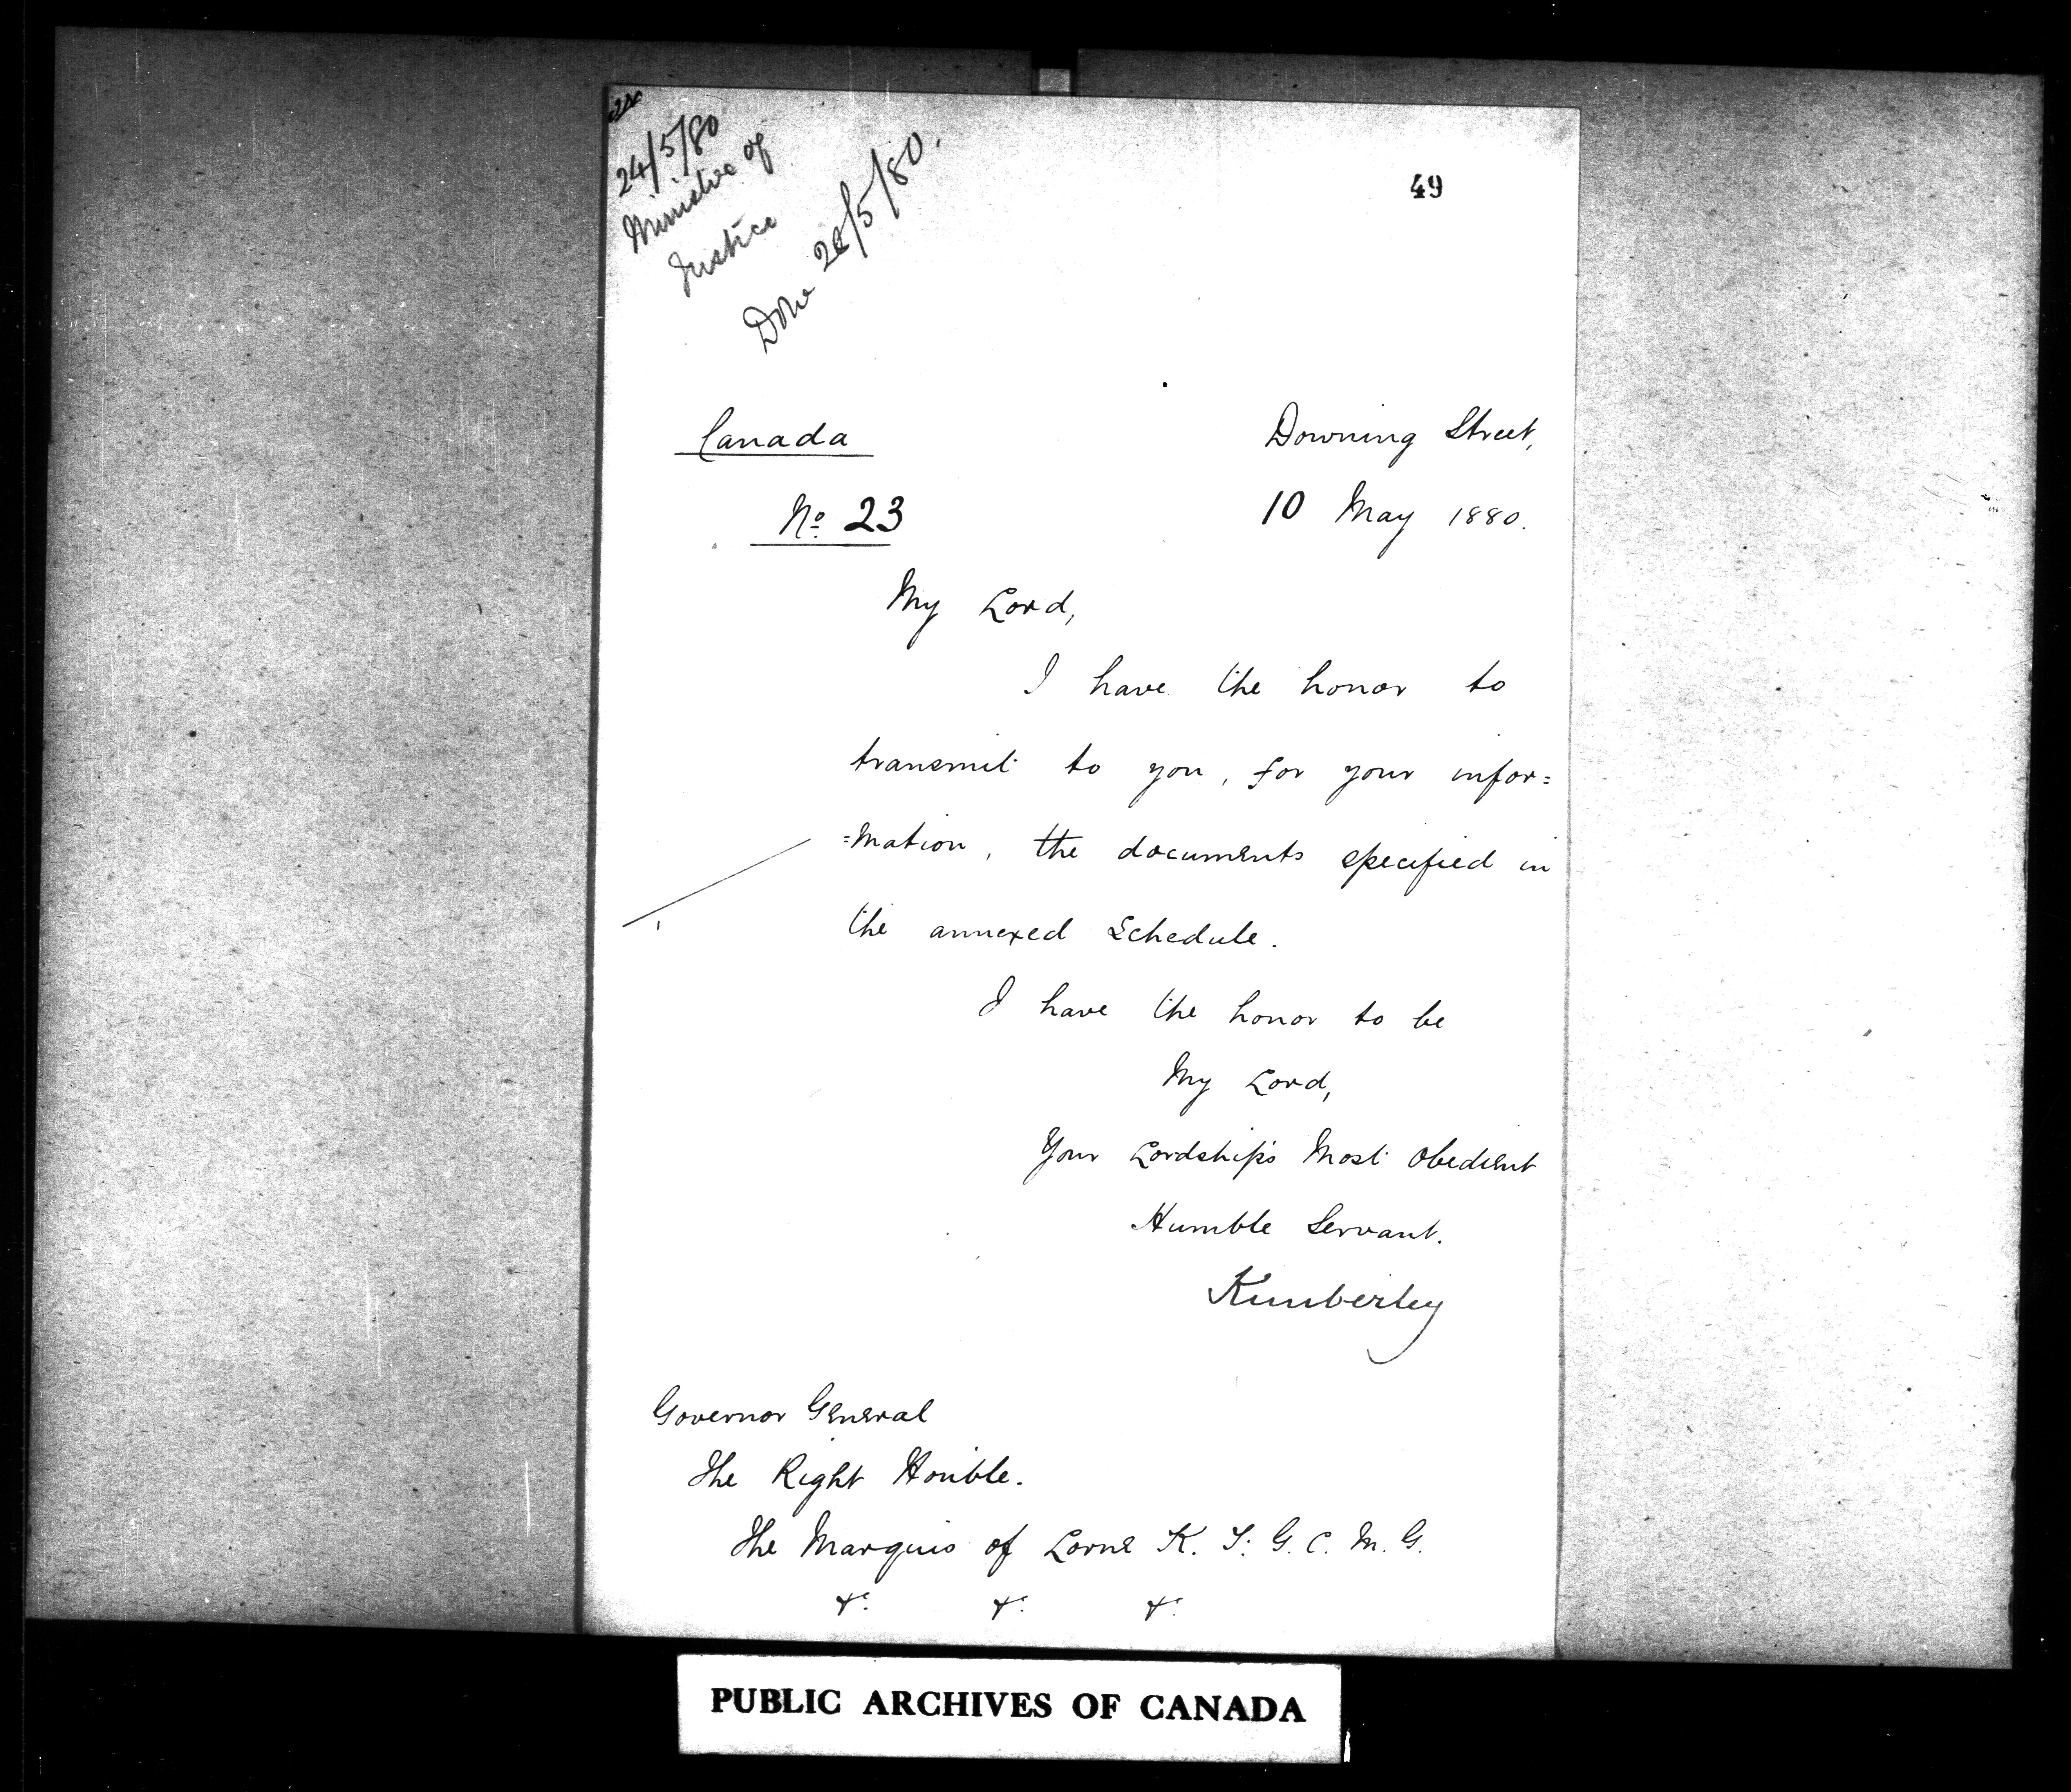 24/5/80
Minister of
Justice
Done 26/5/80.
49
Canada
Downing Street,
No 23
10 May 1880.
My Lord,
I have the honor to
transmit to you, for your infor=
=mation, the documents specified in
the annexed Schedule.
I have the honor to be
My Lord,
Your Lordship's Most Obedient
Humble Servant.
Kimberley
Governor General
The Right Honble.
The Marquis of Lorne K. T. G. C. M. G.
&c. &c. &c.
PUBLIC ARCHIVES OF CANADA